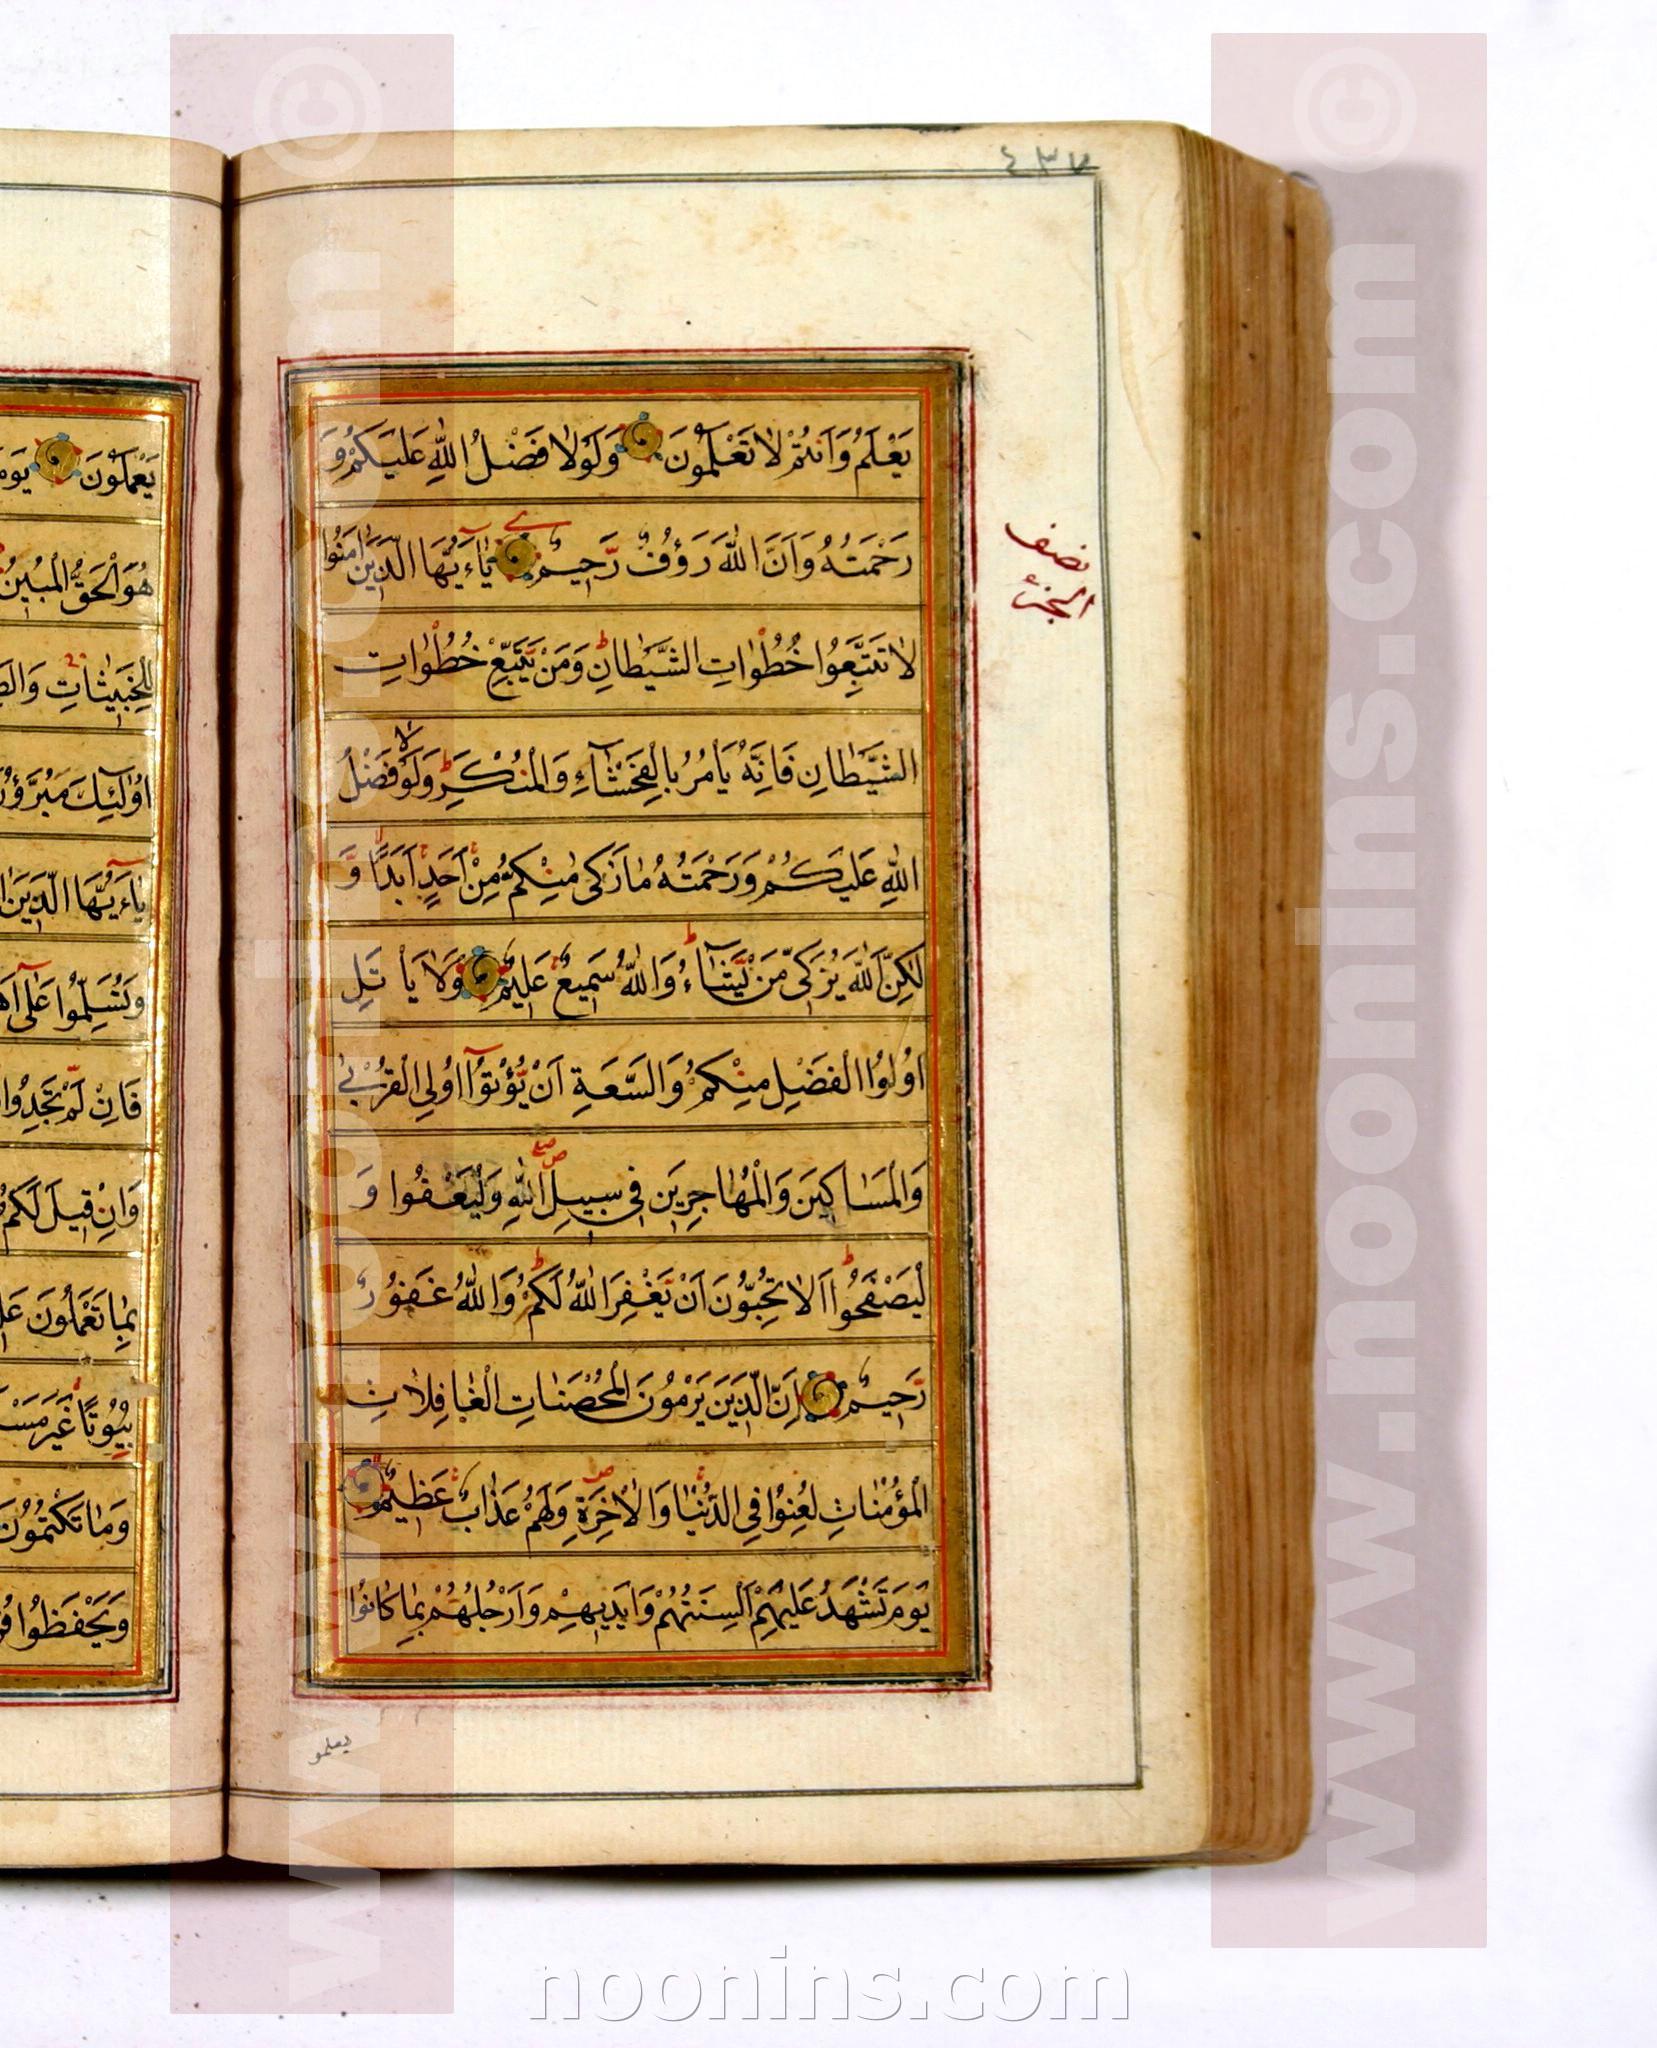 ٤٣٧
يَعْلَمُ وَاَنْتُمْ لاٰ تَعْلَمُونَ وَلَوْلاٰ فَضْلُ اللّٰهِ عَلَيْكُمْ وَ
رَحْمَتُهُ وَاَنَّ اللّٰهَ رَؤُفٌ رَّحٖيمٌ يٰٓاءَيُّهَا الَّذٖينَ اٰمَنُوا
نصف
الجزء
لاٰ تَتَّبِعُوا خُطُوٰاتِ الشَّيْطٰانِ وَمَنْ يَتَّبِعْ خُطُوٰاتِ
الشَّيْطٰانِ فَاِنَّهُ يَأْمُرُ بِالْفَحْشٰٓاءِ وَالْمُنْكَرِ وَلَوْلاٰ فَضْلُ
اللّٰهِ عَلَيْكُمْ وَرَحْمَتُهُ مٰا زَكٰى مِنْكُمْ مِنْ اَحَدٍ اَبَدًا وَّ
لٰكِنَّ اللّٰهَ يُزَكّٖى مَنْ يَّشٰٓاءُ وَاللّٰهُ سَمٖيعٌ عَلٖيمٌ وَلاٰ يَأْتَلِ
اُولُوا الْفَضْلِ مِنْكُمْ وَالسَّعَةِ اَنْ يُّؤْتُوٓا اُولِي الْقُرْبٰى
وَالْمَسٰاكٖينَ وَالْمُهٰاجِرٖينَ فٖى سَبٖيلِ اللّٰهِ وَلْيَعْفُوا وَ
لْيَصْفَحُوا اَلاٰ تُحِبُّونَ اَنْ يَّغْفِرَ اللّٰهُ لَكُمْ وَاللّٰهُ غَفُورٌ
رَّحٖيمٌ اِنَّ الَّذٖينَ يَرْمُونَ الْمُحْصَنٰاتِ الْغٰافِلاٰتِ
الْمُؤْمِنٰاتِ لُعِنُوا فِي الدُّنْيٰا وَالْاٰخِرَةِ وَلَهُمْ عَذٰابٌ عَظٖيمٌ
يَوْمَ تَشْهَدُ عَلَيْهِمْ اَلْسِنَتُهُمْ وَاَيْدٖيهِمْ وَاَرْجُلُهُمْ بِمٰا كٰانُوا
يعلمو
يَعْمَلُونَ
هُوَ الْحَقُّ الْمُبٖينُ
لِلْخَبٖيثٰاتِ
اُولٰٓئِكَ مُبَرَّؤُنَ
يٰٓاءَيُّهَا الَّذٖينَ
وَتُسَلِّمُوا عَلٰٓى
فَاِنْ لَمْ تَجِدُوا
وَاِنْ قٖيلَ لَكُمُ
بِمٰا تَعْمَلُونَ
بُيُوتًا غَيْرَ
وَمٰا تَكْتُمُونَ
وَيَحْفَظُوا
www.noonins.com ©
www.noonins.com ©
noonins.com